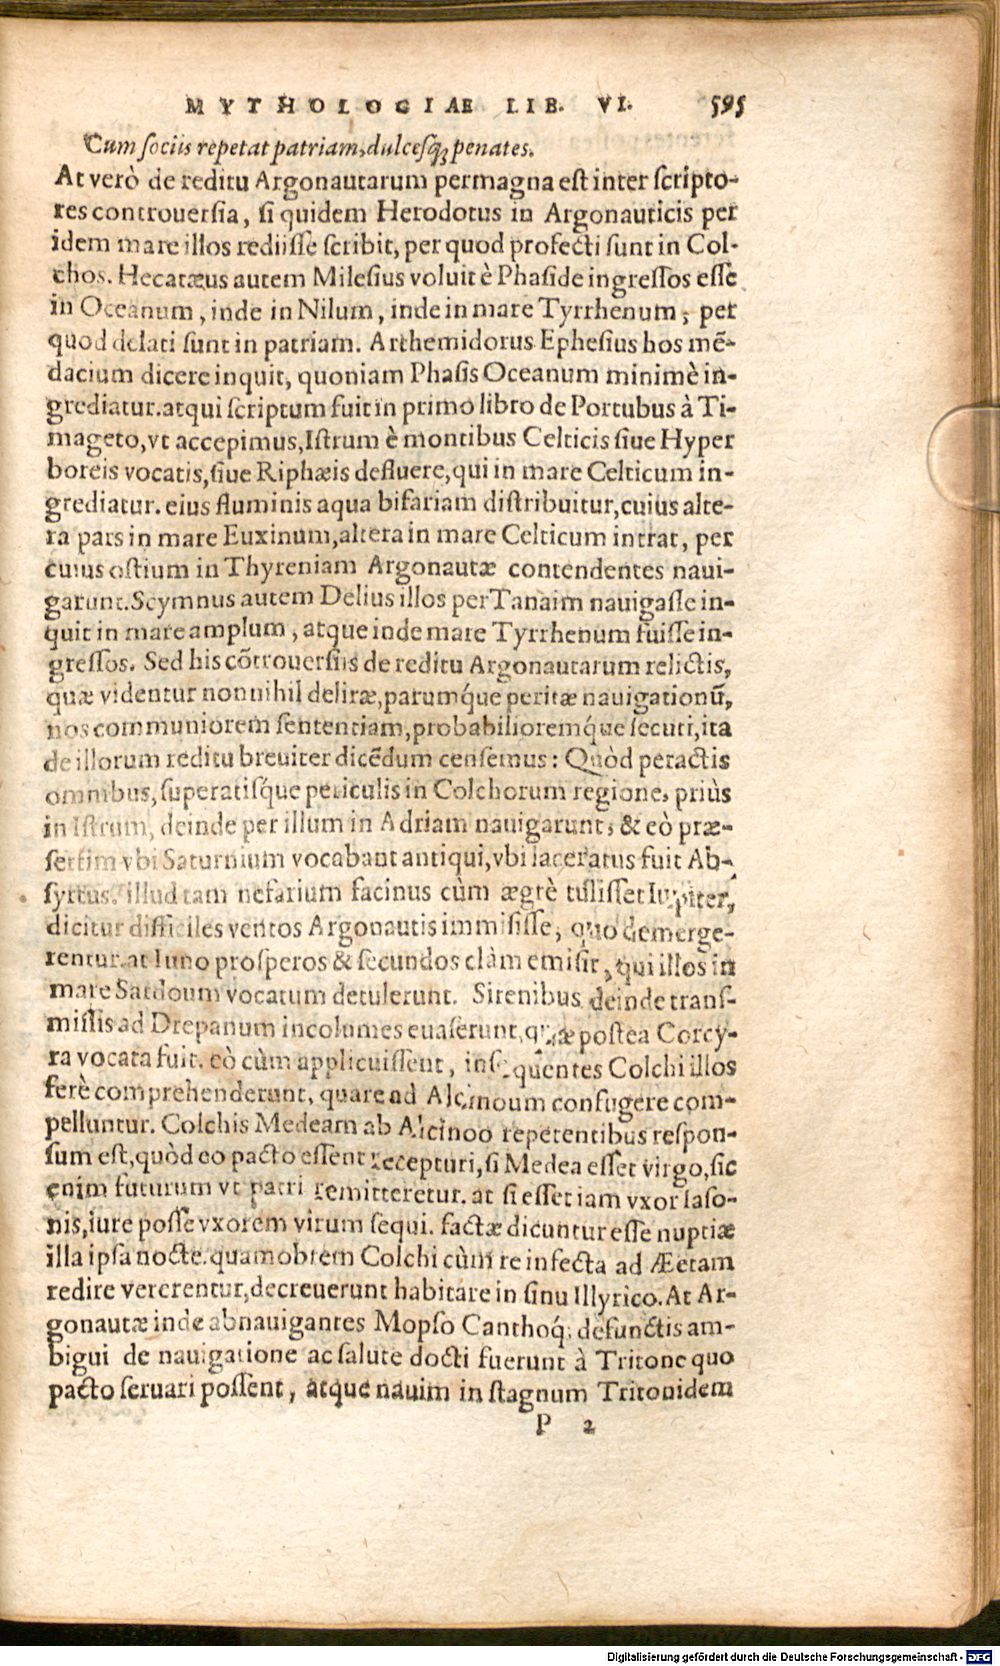 MYTHOLOGIAE LIB. VI. 595
Cum sociis repetat patriam, dulcesq́; penates.
At verò de reditu Argonautarum permagna est inter scripto-
res controuersia, si quidem Herodotus in Argonauticis per
idem mare illos rediisse scribit, per quod profecti sunt in Col-
chos. Hecatæus autem Milesius voluit è Phaside ingressos esse
in Oceanum, inde in Nilum, inde in mare Tyrrhenum, per
quod delati sunt in patriam. Arthemidorus Ephesius hos mē-
dacium dicere inquit, quoniam Phasis Oceanum minimè in-
grediatur. atqui scriptum fuit in primo libro de Portubus à Ti-
mageto, vt accepimus, Istrum è montibus Celticis siue Hyper
boreis vocatis, siue Riphæis defluere, qui in mare Celticum in-
grediatur. eius fluminis aqua bifariam distribuitur, cuius alte-
ra pars in mare Euxinum, altera in mare Celticum intrat, per
cuius ostium in Thyreniam Argonautæ contendentes naui-
garunt. Scymnus autem Delius illos per Tanaim nauigasse in-
quit in mare amplum, atque inde mare Tyrrhenum fuisse in-
gressos. Sed his cōtrouersiis de reditu Argonautarum relictis,
quæ videntur nonnihil deliræ, parumq́ue peritæ nauigationū,
nos communiorem sententiam, probabilioremq́ue secuti, ita
de illorum reditu breuiter dicēdum censemus: Quòd peractis
omnibus, superatisq́ue periculis in Colchorum regione, priùs
in Istrum, deinde per illum in Adriam nauigarunt, & eò præ-
sertim vbi Saturnium vocabant antiqui, vbi laceratus fuit Ab-
syrtus. illud tam nefarium facinus cùm ægrè tulisset Iupiter,
dicitur difficiles ventos Argonautis immisisse, quo demerge-
rentur. at Iuno prosperos & secundos clàm emisit, qui illos in
mare Sardoum vocatum detulerunt. Sirenibus deinde trans-
missis ad Drepanum incolumes euaserunt, quæ postea Corcy-
ra vocata fuit. eò cùm applicuissent, insequentes Colchi illos
ferè comprehenderunt, quare ad Alcinoum confugere com-
pelluntur. Colchis Medeam ab Alcinoo repetentibus respon-
sum est, quòd eo pacto essent recepturi, si Medea esset virgo, sic
enim futurum vt patri remitteretur. at si esset iam vxor Iaso-
nis, iure posse vxorem virum sequi. factæ dicuntur esse nuptiæ
illa ipsa nocte. quamobrem Colchi cùm re infecta ad Æetam
redire vererentur, decreuerunt habitare in sinu Illyrico. At Ar-
gonautæ inde abnauigantes Mopso Canthoq́; defunctis am-
bigui de nauigatione ac salute docti fuerunt à Tritone quo
pacto seruari possent, atque nauim in stagnum Tritonidem
P 2
Digitalisierung gefördert durch die Deutsche Forschungsgemeinschaft - DFG